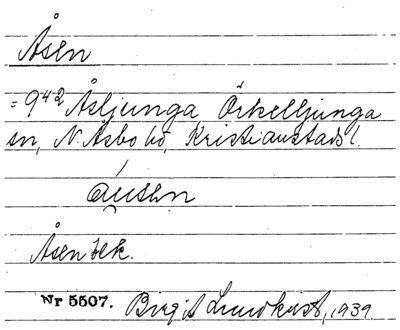 Åsen
= 9⁴² Åsljunga Örkelljunga
sn, N. Åsbo hd, Kristianstads l.
Åsen bek.
Nr 5507. Birgit Lundkvist, 1939